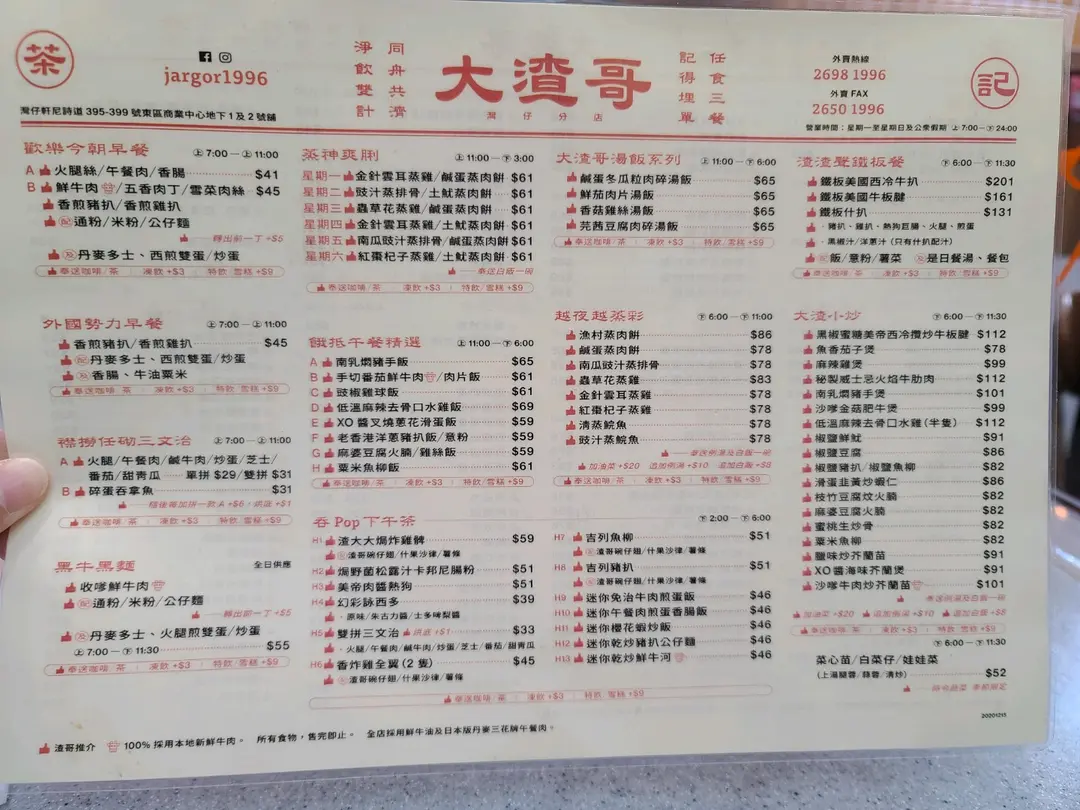 茶
jargor1996
灣仔軒尼詩道 395-399 號東區商業中心地下 1 及 2 號舖
淨飲雙計
同舟共濟
大渣哥
灣仔分店
記得埋單
任食三餐
外賣熱線
2698 1996
外賣 FAX
2650 1996
記
營業時間：星期一至星期日及公眾假期 上 7:00-下 24:00
歡樂今朝早餐 上 7:00 — 上 11:00
A 火腿絲/午餐肉/香腸 $41
B 鮮牛肉/五香肉丁/雪菜肉絲 $45
香煎豬扒/香煎雞扒
配 通粉/米粉/公仔麵
轉出前一丁 +$5
及 丹麥多士、西煎雙蛋/炒蛋
奉送咖啡/茶 | 凍飲 +$3 | 特飲/雪糕 +$9
外國勢力早餐 上 7:00 — 上 11:00
香煎豬扒/香煎雞扒 $45
配 丹麥多士、西煎雙蛋/炒蛋
及 香腸、牛油粟米
奉送咖啡/茶 | 凍飲 +$3 | 特飲/雪糕 +$9
襟撈任砌三文治 上 7:00 — 上 11:00
A 火腿/午餐肉/鹹牛肉/炒蛋/芝士/
番茄/甜青瓜 單拼 $29/雙拼 $31
B 碎蛋吞拿魚 $31
隨後每加拼一款 A +$6，烘底 +$1
奉送咖啡/茶 | 凍飲 +$3 | 特飲/雪糕 +$9
黑牛黑麵 全日供應
收嗲鮮牛肉
配 通粉/米粉/公仔麵
轉出前一丁 +$5
及 丹麥多士、火腿煎雙蛋/炒蛋
上 7:00 — 下 11:30 $55
奉送咖啡/茶 | 凍飲 +$3 | 特飲/雪糕 +$9
蒸神爽脷 上 11:00 — 下 3:00
星期一 金針雲耳蒸雞/鹹蛋蒸肉餅 $61
星期二 豉汁蒸排骨/土魷蒸肉餅 $61
星期三 蟲草花蒸雞/鹹蛋蒸肉餅 $61
星期四 金針雲耳蒸雞/土魷蒸肉餅 $61
星期五 南瓜豉汁蒸排骨/鹹蛋蒸肉餅 $61
星期六 紅棗杞子蒸雞/土魷蒸肉餅 $61
奉送白飯一碗
奉送咖啡/茶 | 凍飲 +$3 | 特飲/雪糕 +$9
餓抵午餐精選 上 11:00 — 下 6:00
A 南乳燜豬手飯 $65
B 手切番茄鮮牛肉/肉片飯 $61
C 豉椒雞球飯 $61
D 低溫麻辣去骨口水雞飯 $69
E XO 醬叉燒蔥花滑蛋飯 $59
F 老香港洋蔥豬扒飯/意粉 $59
G 麻婆豆腐火腩/雞絲飯 $59
H 粟米魚柳飯 $61
奉送咖啡/茶 | 凍飲 +$3 | 特飲/雪糕 +$9
大渣哥湯飯系列 上 11:00 — 下 6:00
鹹蛋冬瓜粒肉碎湯飯 $65
鮮茄肉片湯飯 $65
香菇雞絲湯飯 $65
芫茜豆腐肉碎湯飯 $65
奉送咖啡/茶 | 凍飲 +$3 | 特飲/雪糕 +$9
越夜越蒸彩 下 6:00 — 下 11:00
漁村蒸肉餅 $86
鹹蛋蒸肉餅 $78
南瓜豉汁蒸排骨 $78
蟲草花蒸雞 $83
金針雲耳蒸雞 $78
紅棗杞子蒸雞 $78
清蒸鯇魚 $78
豉汁蒸鯇魚 $78
奉送例湯及白飯一碗
加油菜 +$20 追加例湯 +$10 追加白飯 +$8
奉送咖啡/茶 | 凍飲 +$3 | 特飲/雪糕 +$9
渣渣聲鐵板餐 下 6:00 — 下 11:30
鐵板美國西冷牛扒 $201
鐵板美國牛板腱 $161
鐵板什扒 $131
· 豬扒、雞扒、熱狗巨腸、火腿、煎蛋
· 黑椒汁/洋蔥汁 (只有什扒配汁)
配 飯/意粉/薯菜 及 是日餐湯、餐包
奉送咖啡/茶 | 凍飲 +$3 | 特飲/雪糕 +$9
大渣小炒 下 6:00 — 下 11:30
黑椒蜜糖美帝西冷攬炒牛板腱 $112
魚香茄子煲 $78
麻辣雞煲 $99
秘製威士忌火焰牛肋肉 $112
南乳燜豬手煲 $101
沙嗲金菇肥牛煲 $99
低溫麻辣去骨口水雞 (半隻) $112
椒鹽鮮魷 $91
椒鹽豆腐 $86
椒鹽豬扒/椒鹽魚柳 $82
滑蛋韭黃炒蝦仁 $86
枝竹豆腐炆火腩 $82
麻婆豆腐火腩 $82
蜜桃生炒骨 $82
粟米魚柳 $82
臘味炒芥蘭苗 $91
XO 醬海味芥蘭煲 $91
沙嗲牛肉炒芥蘭苗 $101
奉送例湯及白飯一碗
加油菜 +$20 追加例湯 +$10 追加白飯 +$8
奉送咖啡/茶 | 凍飲 +$3 | 特飲/雪糕 +$9
下 6:00 — 下 11:30
菜心苗/白菜仔/娃娃菜
(上湯腿蓉/蒜蓉/清炒) $52
吞 Pop 下午茶 下 2:00 — 下 6:00
H1 渣大大焗炸雞髀 $59
配 渣哥碗仔翅/什果沙律/薯條
H2 焗野菌松露汁卡邦尼腸粉 $51
H3 美帝肉醬熱狗 $51
H4 幻彩詠西多 $39
· 原味/朱古力醬/士多啤梨醬
H5 雙拼三文治 烘底 +$1 $33
· 火腿/午餐肉/鹹牛肉/炒蛋/芝士/番茄/甜青瓜
H6 香炸雞全翼 (2 隻) $45
配 渣哥碗仔翅/什果沙律/薯條
H7 吉列魚柳 $51
配 渣哥碗仔翅/什果沙律/薯條
H8 吉列豬扒 $51
配 渣哥碗仔翅/什果沙律/薯條
H9 迷你免治牛肉煎蛋飯 $46
H10 迷你午餐肉煎蛋香腸飯 $46
H11 迷你櫻花蝦炒飯 $46
H12 迷你乾炒豬扒公仔麵 $46
H13 迷你乾炒鮮牛河 $46
奉送咖啡/茶 | 凍飲 +$3 | 特飲/雪糕 +$9
20201215
渣哥推介 100% 採用本地新鮮牛肉。 所有食物，售完即止。 全店採用鮮牛油及日本版丹麥三花牌午餐肉。